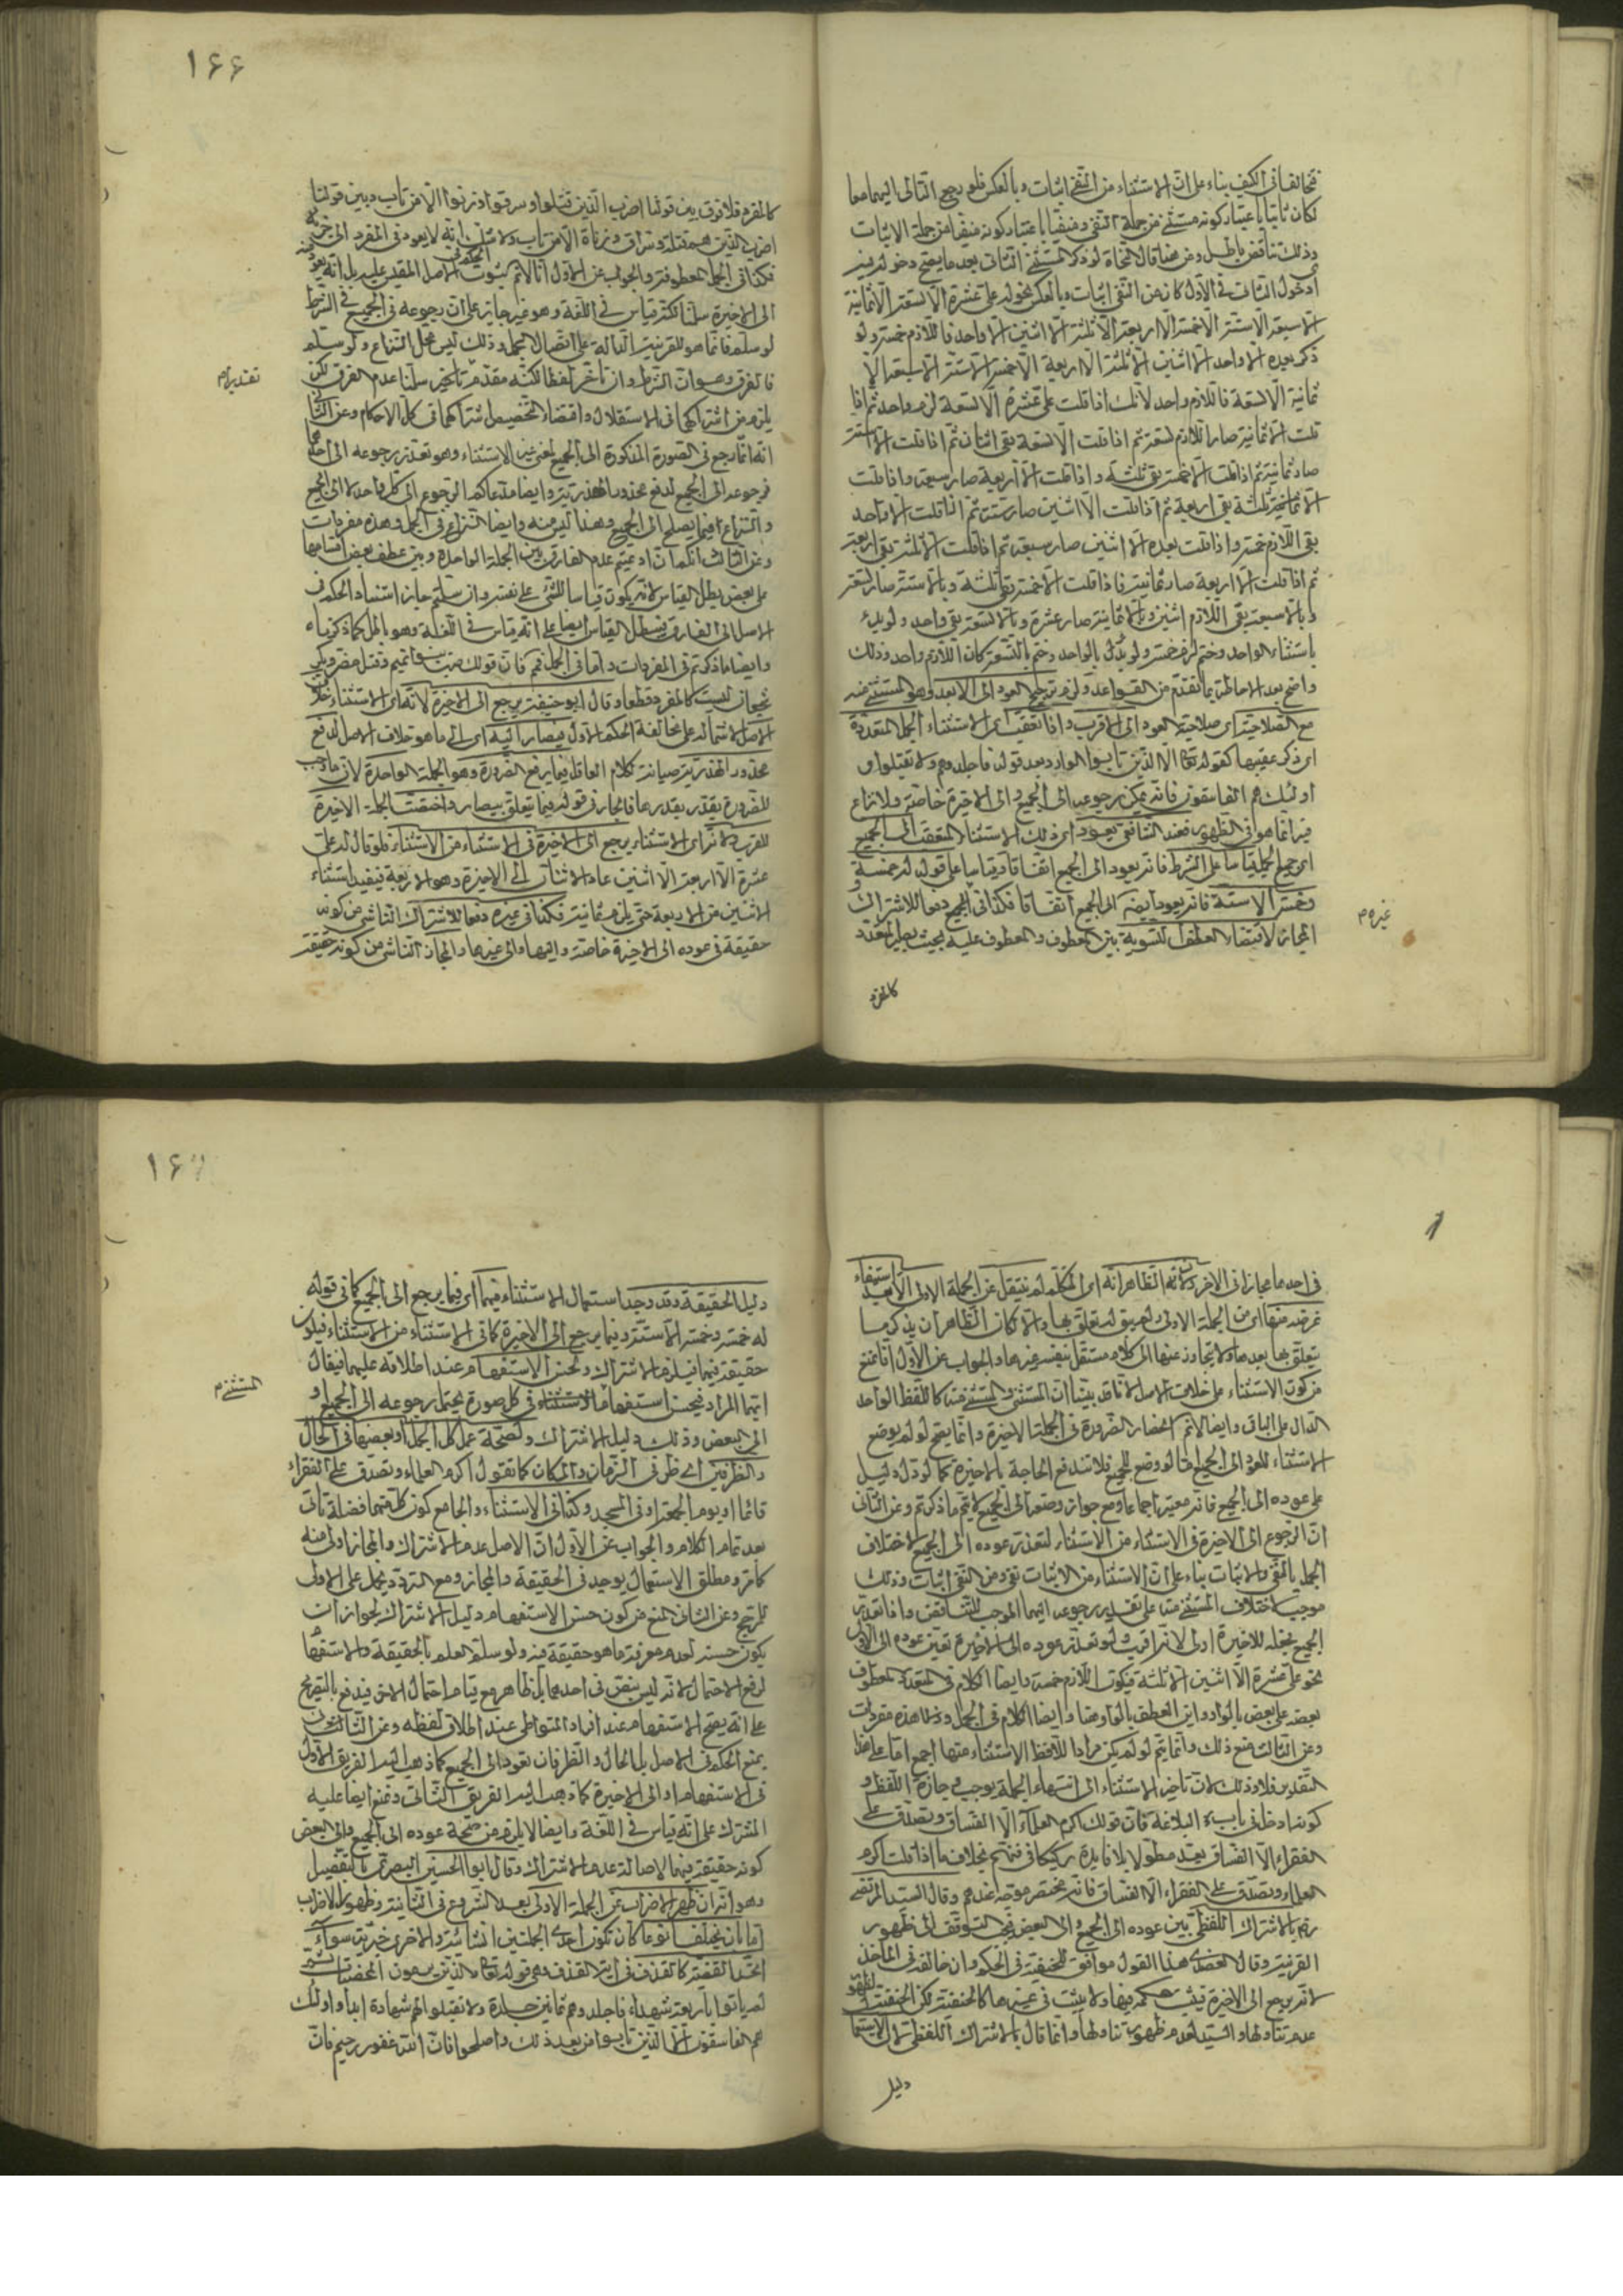 فتخالفا في الكيف بناء على ان الاستثناء من النفي اثبات وبالعكس فلو رجع التالي اليهما معا
لكان ثابتا باعتبار كونه مستثنى من جملة النفي ومنفيا باعتبار كونه منفيا من جملة الاثبات
وذلك تناقض باطل ومن هنا قال النحاة لو ذكر المستثنى الثاني بعد ما يصح دخوله فيه
او دخول الثاني في الاول كان من النفي اثبات وبالعكس نحو له على عشرة الا تسعة الا ثمانية
الا سبعة الا ستة الا خمسة الا اربعة الا ثلثة الا اثنين الا واحد فاللازم خمسة ولو
ذكر بعده الا واحد الا اثنين الا ثلثة الا اربعة الا خمسة الا ستة الا سبعة الا
ثمانية الا تسعة فاللازم واحد لانك اذا قلت على عشرة الا تسعة لزم واحد ثم اذا
قلت الا ثمانية صار اللازم تسعة ثم اذا قلت الا سبعة بقي اثنان ثم اذا قلت الا ستة
صار ثمانية ثم اذا قلت الا خمسة بقي ثلثة واذا قلت الا اربعة صار سبعة واذا قلت
الا ثلثة بقي اربعة ثم اذا قلت الا اثنين صار ستة ثم اذا قلت الا واحد
بقي اللازم خمسة واذا قلت بعده الا اثنين صار سبعة ثم اذا قلت الا ثلثة بقي اربعة
ثم اذا قلت الا اربعة صار ثمانية فاذا قلت الا خمسة بقي ثلثة وبالا ستة صار تسعة
وبالا سبعة بقي اللازم اثنين وبالا ثمانية صار عشرة وبالا تسعة بقي واحد ولو بدء
باستثناء الواحد وختم لزم خمسة ولو بدل بالواحد وختم بالتسعة كان اللازم واحد وذلك
واضح بعد الاحاطة بما تقدم من القواعد ولزم ترجيح العود الى الابعد وهو المستثنى منه
مع الصلاحية اى صلاحية العود الى الاقرب واذا تعقب الاستثناء الجمل المتعددة
اى ذكر عقيبها كقوله تعالى الا الذين تابوا الوارد بعد قوله فاجلدوهم ولا تقبلوا
اولئك هم الفاسقون فانه يمكن رجوعه الى الجميع والى الاخيرة خاصة ولا نزاع
فيه انما هو في الظهور فعند الشافعي يعود اى ذلك الاستثناء المتعقب الى الجميع
اى جميع الجمل قياسا على الشرط فانه يعود الى الجميع اتفاقا وقياسا على قوله له خمسة
وخمسة الا ستة فانه يعود ايضا الى الجميع اتفاقا فكذا في الجميع دفعا للاشتراك
المجاز لاقتضاء العطف التسوية بين المعطوف والمعطوف عليه بحيث يصير المتعدد
غيره م
كالمفرد
١۶۶
كالمفرد فلا فرق بين قولنا اضرب الذين قتلوا وسرقوا وزنوا الا من تاب وبين قولنا
اضرب الذين هم قتلة وسراق وزناة الا من تاب ولا شك انه لا يعود في المفرد الى جزئه
فكذا في الجمل المعطوفة والجواب عن الاول انا لا نم ثبوت الحكم في الاصل المقيس عليه بل انه يعود
الى الاخيرة سلمنا لكنه قياس في اللغة وهو غير جائز على ان رجوعه في الجميع في الشرط
لو سلم فانما هو للقرينة الدالة على اتصال الجمل وذلك ليس محل النزاع ولو سلم
فالفرق وهو ان الشرط وان تاخر لفظا لكنه مقدم تقديرا سلمنا عدم الفرق لكن
يلزم من اشتراكهما في الاستقلال واقتضاء التخصيص اشتراكهما في كل الاحكام وعن الثاني
انه انما رجع في الصورة المذكورة الى الجميع لمعنى غير الاستثناء وهو تعذر رجوعه الى احدهما
فرجوعه الى الجميع لدفع محذور الهذرية وايضا مدعاكم الرجوع الى كل واحد لا الى الجميع
والنزاع فيما يصلح الى الجميع وهذا ليس منه وايضا النزاع في الجمل وهذه مفردات
وعن الثالث انكم ان ادعيتم عدم الفارق بين الجملة الواحدة وبين عطف بعض اقسامها
على بعض بطل القياس لانه يكون قياسا للشئ على نفسه وان سلمتم جاز استناد الحكم في
الاصل الى الفارق فيبطل القياس ايضا على انه قياس في اللغة وهو باطل كما ذكرناه
وايضا ما ذكرتم في المفردات واما في الجمل فمم فان قولك ضربت بنو تميم وقتل مضر وبكر
شجعان ليست كالمفرد قطعا وقال ابو حنيفة يرجع الى الاخيرة لانه اى الاستثناء خلاف
الاصل لاشتماله على مخالفة الحكم الاول فيصار اليه اى الى ما هو خلاف الاصل لدفع
محذور الهذرية صيانة كلام العاقل فيما يرفع الضرورة وهو الجملة الواحدة لان ما وجب
للضرورة يقدر بقدرها فالجار في قوله فيما يتعلق بيصار واختصت الجملة الاخيرة
للقرب ولانه اى الاستثناء يرجع الى الاخيرة في الاستثناء من الاستثناء فلو قال له على
عشرة الا اربعة الا اثنين عاد الاثنان الى الاخيرة وهو الاربعة فيفيد استثناء
الاثنين من الاربعة حتى يلزم ثمانية فكذا في غيره دفعا للاشتراك الناشي من كونه
حقيقة في عوده الى الاخيرة خاصة واليها والى غيرها والمجاز الناشي من كونه حقيقة
تقديرا م
في احدهما مجازا في الاخر ولانه الظاهر انه اى المتكلم لم ينتقل عن الجملة الاولى الا بعد استيفاء
غرضه منها اى من الجملة الاولى ولم يبق له تعلق بها والا لكان الظاهر ان يذكر ما
يتعلق بها بعدها ولا يتجاوز عنها الى كلام مستقل بنفسه غيرها والجواب عن الاول انا نمنع
من كون الاستثناء على خلاف الاصل لانا قد بينا ان المستثنى والمستثنى منه كاللفظ الواحد
الدال على الباقي وايضا لا نم انحصار الضرورة في الجملة الاخيرة وانما يصح لو لم يوضع
الاستثناء للعود الى الجميع اما لو وضع للجميع فلا تندفع الحاجة بالاخيرة كما لو دل دليل
على عوده الى الجميع فانه معتبر اجماعا ومع جواز وضعه الى الجميع لا يتم ما ذكرتم وعن الثاني
ان الرجوع الى الاخيرة في الاستثناء من الاستثناء لتعذر عوده الى الجميع لاختلاف
الجمل بالنفي والاثبات بناء على ان الاستثناء من الاثبات نفي ومن النفي اثبات وذلك
موجب لاختلاف المستثنى منه على تقدير رجوعه اليهما الموجب للتناقض واذا تعذر
الجميع يجعله للاخيرة اولى لانه اقرب ولو تعذر عوده الى الاخيرة تعين عوده الى الاول
نحو على عشرة الا اثنين الا ثلثة فيكون اللازم خمسة وايضا الكلام في المتعدد المعطوف
بعضه على بعض بالواو واين العطف بالواو هنا وايضا الكلام في الجمل وهذه مفردات
وعن الثالث منع ذلك وانما يتم لو لم يكن مرادا للافظ الاستثناء منها اجمع اما على هذا
التقدير فلا وذلك لان تاخير الاستثناء الى انتهاء الجملة يوجب وجازة اللفظ و
كونه ادخل في باب البلاغة فان قولك اكرم العلماء الا الفساق وتصدق على
الفقراء الا الفساق يعد مطولا بلا فايدة ركيكا في فنهم بخلاف ما اذا قلت اكرم
العلماء وتصدق على الفقراء الا الفساق فانه مختصر موجه عندهم وقال السيد المرتضى
رضه بالاشتراك اللفظي بين عوده الى الجميع والى البعض فيجب التوقف الى ظهور
القرينة وقال العضدى هذا القول موافق للحنفية في الحكم وان خالفه في الماخذ
لانه يرجع الى الاخيرة فيثبت حكمه فيها ولا يثبت في غيرها كالحنفية لكن الحنفية لظهور
عدم تناولها والسيد لعدم ظهور تناولها وانما قال بالاشتراك اللفظي لان الاستعمال
دليل
١۶٧
دليل الحقيقة وقد وجد استعمال الاستثناء فيهما اى فيما يرجع الى الجميع كما في قوله
له خمسة وخمسة الا ستة وفيما يرجع الى الاخيرة كما في الاستثناء من الاستثناء فيكون
حقيقة فيهما فيلزم الاشتراك ولحسن الاستفهام عند اطلاقه عليهما فيقال
ايهما المراد فيحسن استفهام الاستثناء في كل صورة يحتمل رجوعه الى الجميع او
الى البعض وذلك دليل الاشتراك ولصحة عمل كل الجمل او بعضها في الحال
والظرفين اى ظرفي الزمان والمكان كما تقول اكرم العلماء وتصدق على الفقراء
قائما او يوم الجمعة او في المسجد وكذا في الاستثناء والجامع كون كل منهما فضلة تاتى
بعد تمام الكلام والجواب عن الاول ان الاصل عدم الاشتراك والمجاز اولى منه
كما مر ومطلق الاستعمال يوجد في الحقيقة والمجاز ومع التردد يحمل على الاولى
للترجيح وعن الثاني المنع من كون حسن الاستفهام دليل الاشتراك لجواز ان
يكون حسنه لعدم معرفة ما هو حقيقة فيه ولو سلم العلم بالحقيقة والاستفهام
لرفع الاحتمال لانه ليس بنص في احدهما بل ظاهر مع قيام احتمال الاخر فيندفع بالتصريح
على انه يصح الاستفهام عند افراد المتواطى عند اطلاق لفظه وعن الثالث
بمنع الحكم في الاصل بل الحال والظرفان لعود الى الجميع كما ذهب اليه الفريق الاول
في الاستفهام او الى الاخيرة كما ذهب اليه الفريق الثاني ونمنع ايضا علية
المشترك على انه قياس في اللغة وايضا لا يلزم من صحة عوده الى الجميع والى البعض
كونه حقيقة فيهما لاصالة عدم الاشتراك وقال ابو الحسين البصرى بالتفصيل
وهو انه ان ظهر الاضراب عن الجملة الاولى بعد الشروع في الثانية وظهور الاضراب
اما بان يختلفا نوعا كان تكون احدى الجملتين انشائية والاخرى خبرية سواء
اتحد القضية كالقذف في اية القذف وهي قوله تعالى والذين يرمون المحصنات ثم
لم ياتوا باربعة شهداء فاجلدوهم ثمانين جلدة ولا تقبلوا لهم شهادة ابدا واولئك
هم الفاسقون الا الذين تابوا من بعد ذلك واصلحوا فان الله غفور رحيم فان
المستثنى م